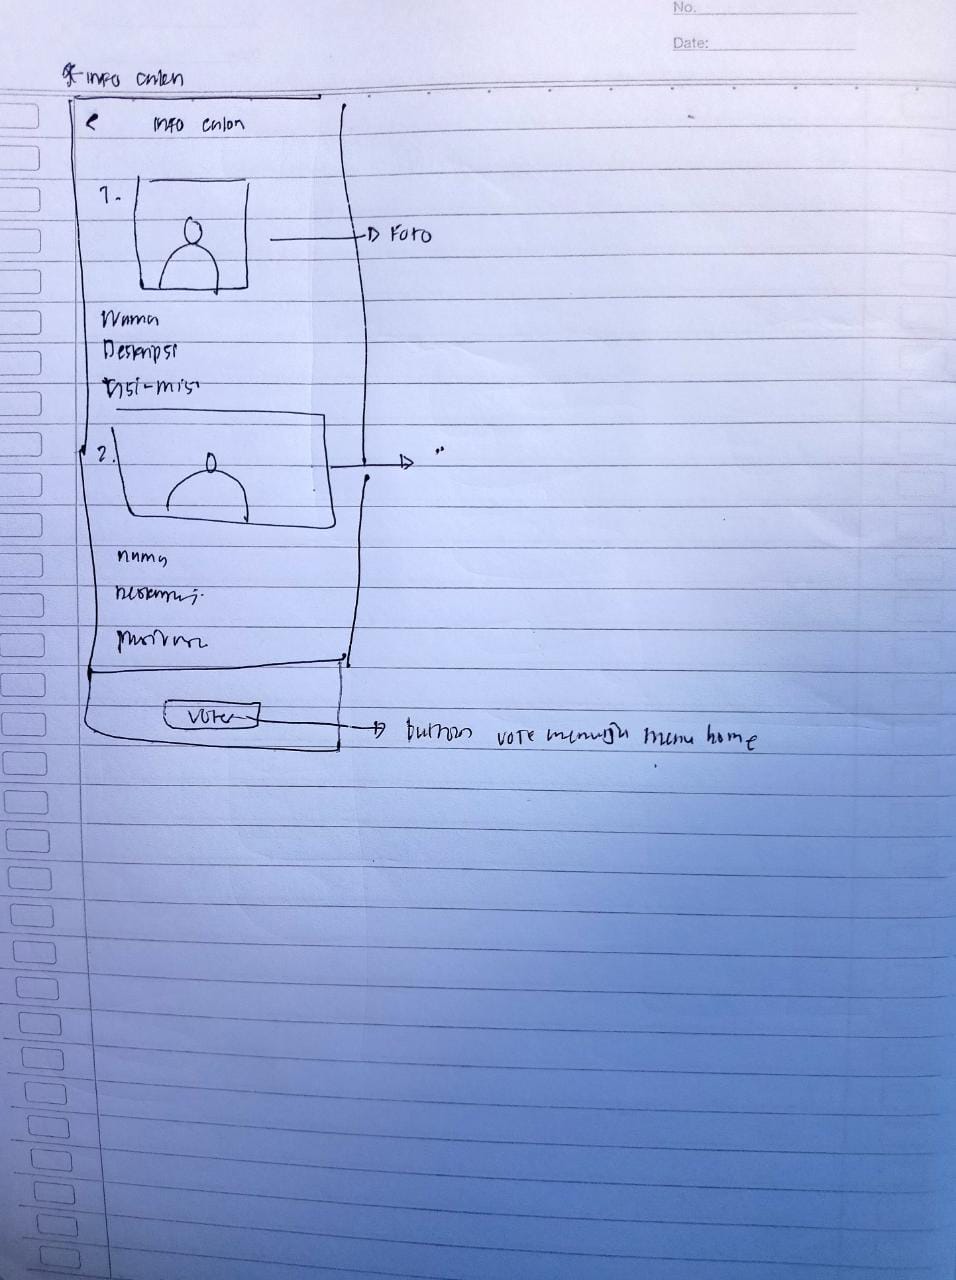 No.
Date:
* info calon
< info calon
1.
→ Foto
Nama
Deskripsi
Visi-misi
2.
→ "
nama
Deskripsi
Vote
→ button vote menuju menu home